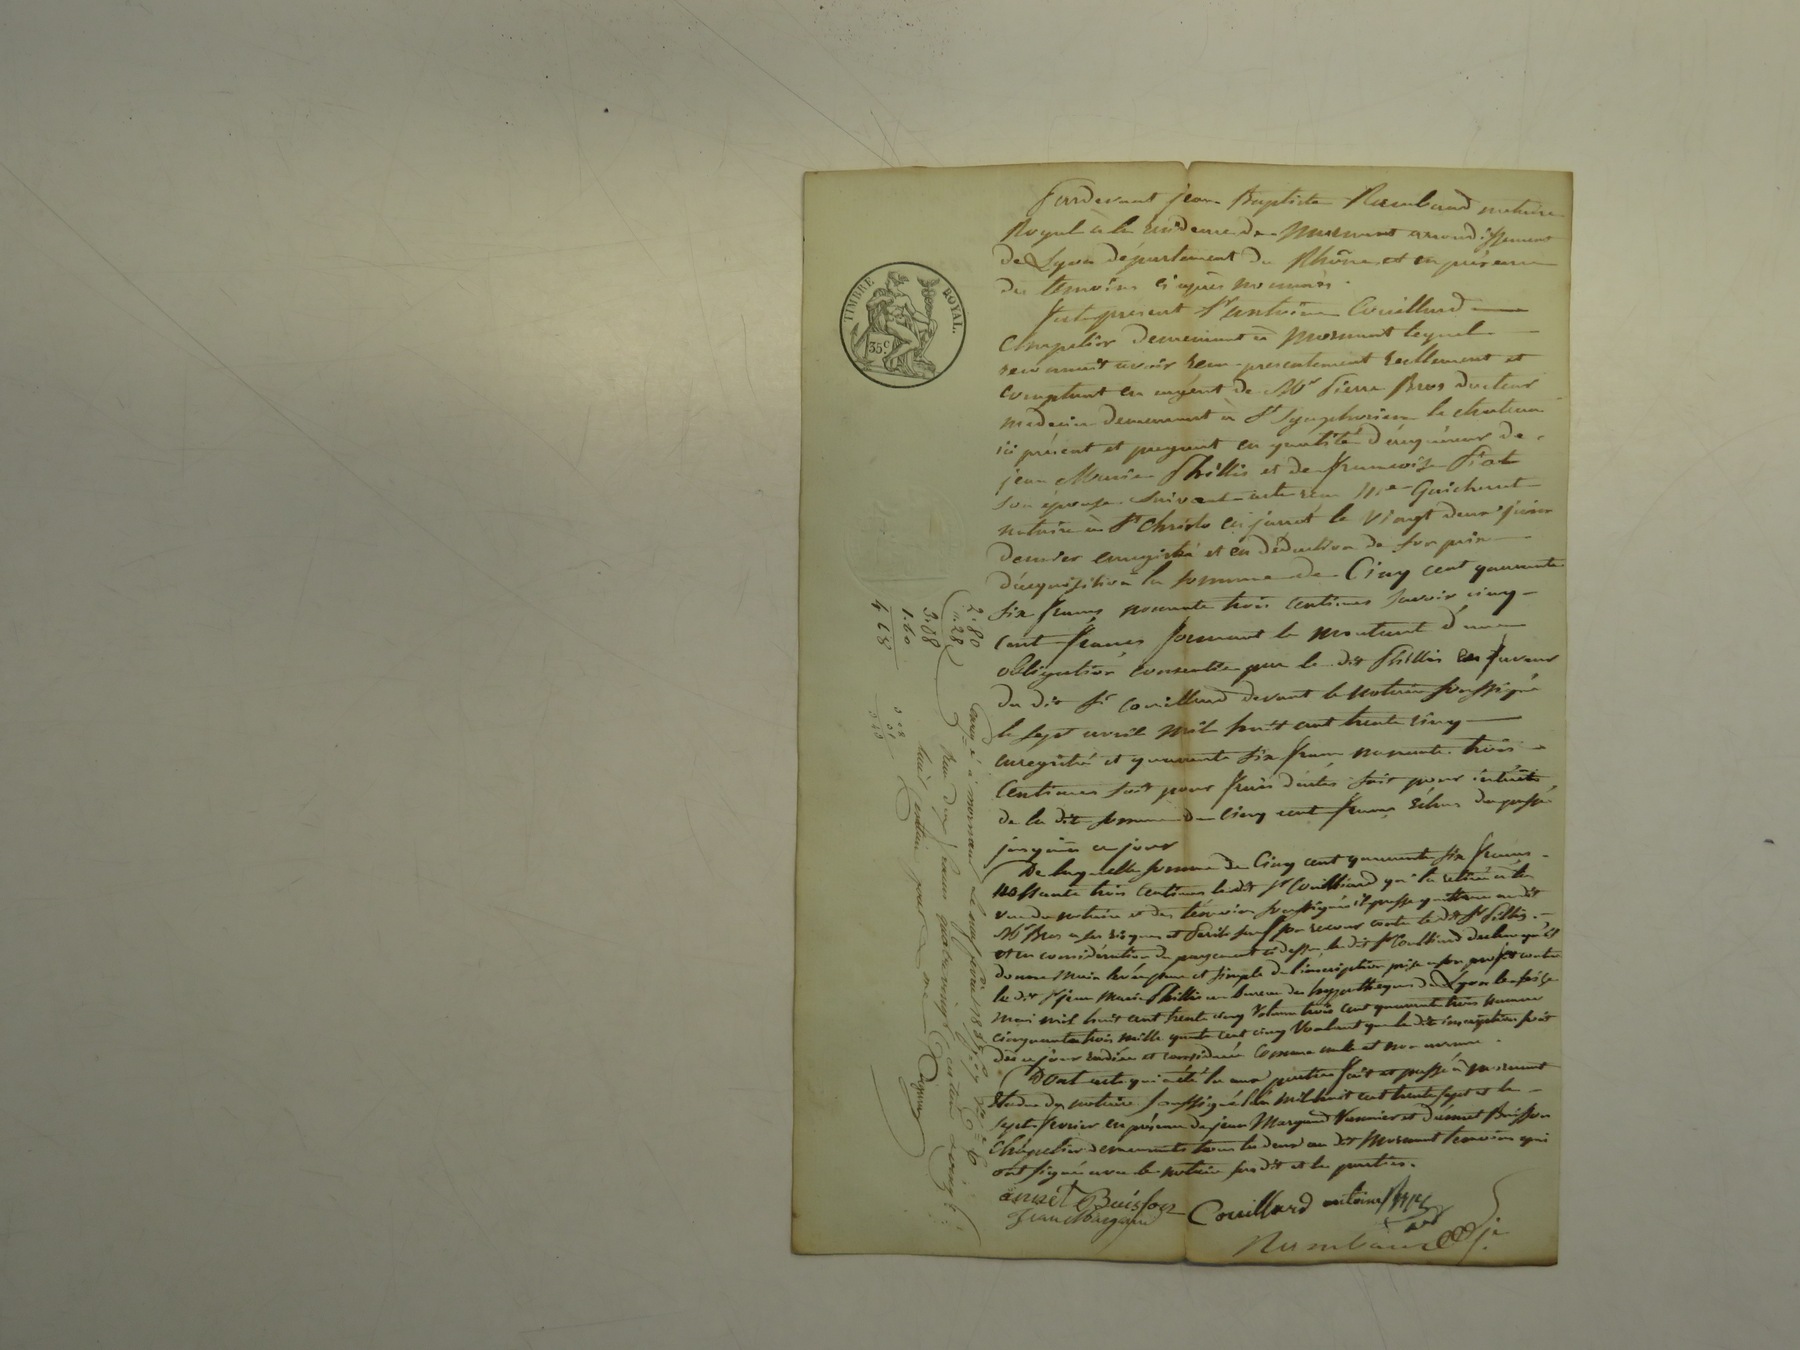 Pardevant jean Baptiste Rambaud notaire
Royal à la residence de Mornant arrondissement
de Lyon département du Rhône et en présence
des témoins ci après nommés.
TIMBRE ROYAL.
35 c.
fut présent Sr antoine Couillard
Chapelier demeurant à Mornant lequel
reconnait avoir recu présentement réellement et
comptant en argent de Mr Pierre Bros docteur
médecin demeurant à St Symphorien le chateau
ici présent et payant en qualité d'acquéreur de
jean Marie Thillis et de françoise Piot
son épouse suivant acte recu Me Guichard
notaire à St Christo en jarret le vingt deux juin
dernier enregistré et en déduction de son prix
d'acquisition la somme de Cinq cent quarante
six francs nonante trois centimes savoir cinq
cent francs formant le montant d'une
obligation consentie par le dit Thillis en faveur
du dit Sr Couillard devant le notaire soussigné
le sept avril mil huit cent trente cinq
enregistré et quarante six francs nonante trois
Centimes soit pour frais d'actes soit pour intérêts
de la dite somme de cinq cent francs échus du passé
jusqu'à ce jour
De laquelle somme de Cinq cent quarante six francs
nonante trois Centimes le dit Sr Couillard qui l'a retirée à la
vue du notaire et des témoins soussignés il passe quittance au dit
Mr Bros a ses risques et périls sauf son recours contre le dit Sr Thillis.
et en considération du payement ci dessus, le dit Sr Couillard déclare qu'il
donne main levée pure et simple de l'inscription prise a son profit contre
le dit Sr jean Marie Thillis au bureau des hypothèques de Lyon le seize
mai mil huit cent trente cinq Volume trois cent quarante trois numero
cinquante trois mille quatre cent cinq Voulant que la dite inscription soit
dès ce jour radiée et considérée Comme nulle et non avenue.
Dont acte qui a été lu aux parties fait et passé à Mornant
Etude du notaire soussigné l'an mil huit cent trente sept et le
sept fevrier en présence de jean Margand Vannier et d'ennet Buisson
Chapelier demeurants tous les deux au dit Mornant témoins qui
ont signé avec le notaire susdit et les parties.
Buisson
Couillard antoine
Jean Margand
Rambaud
2.80
1.28
3.08
1.60
4.68